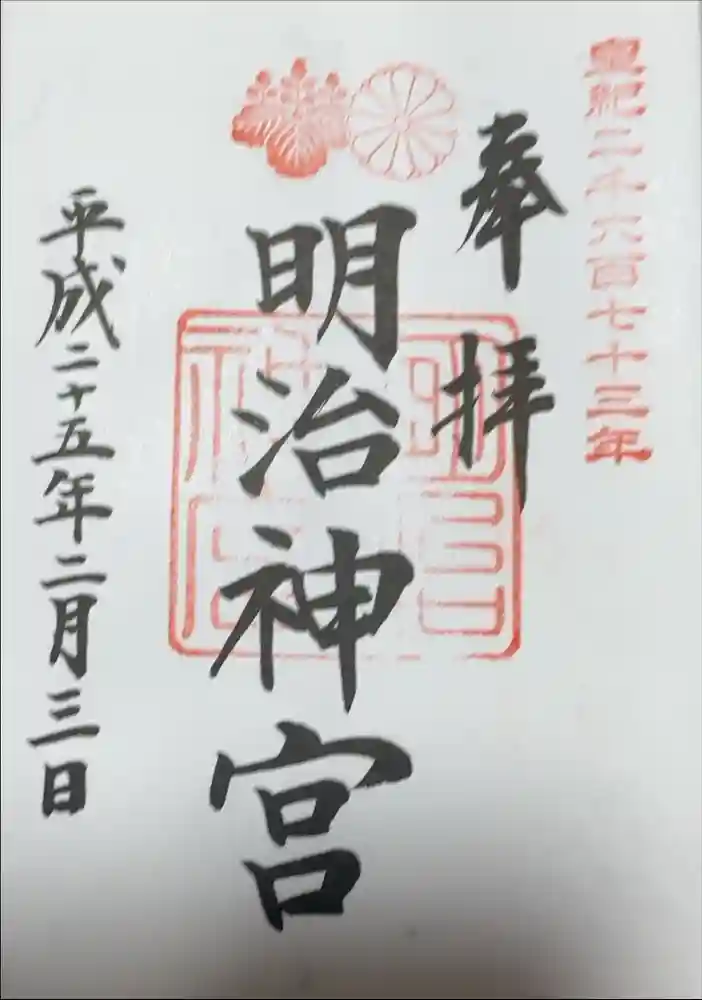 皇紀二千六百七十三年
奉拝
明治神宮
平成二十五年二月三日